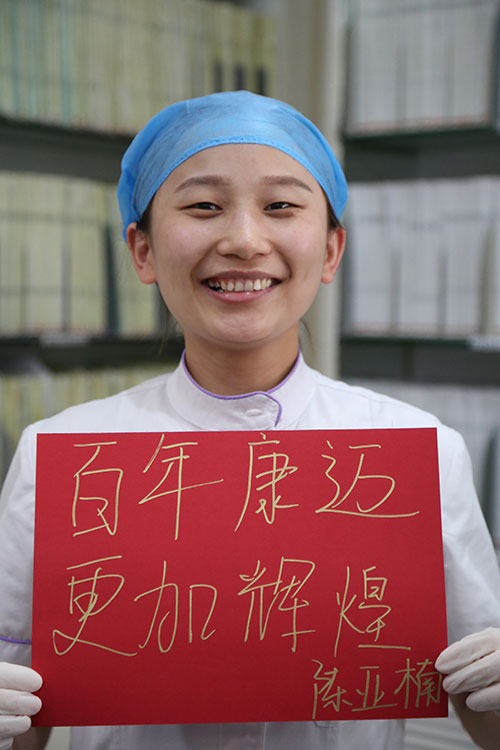 百年康迈
更加辉煌
陈亚楠